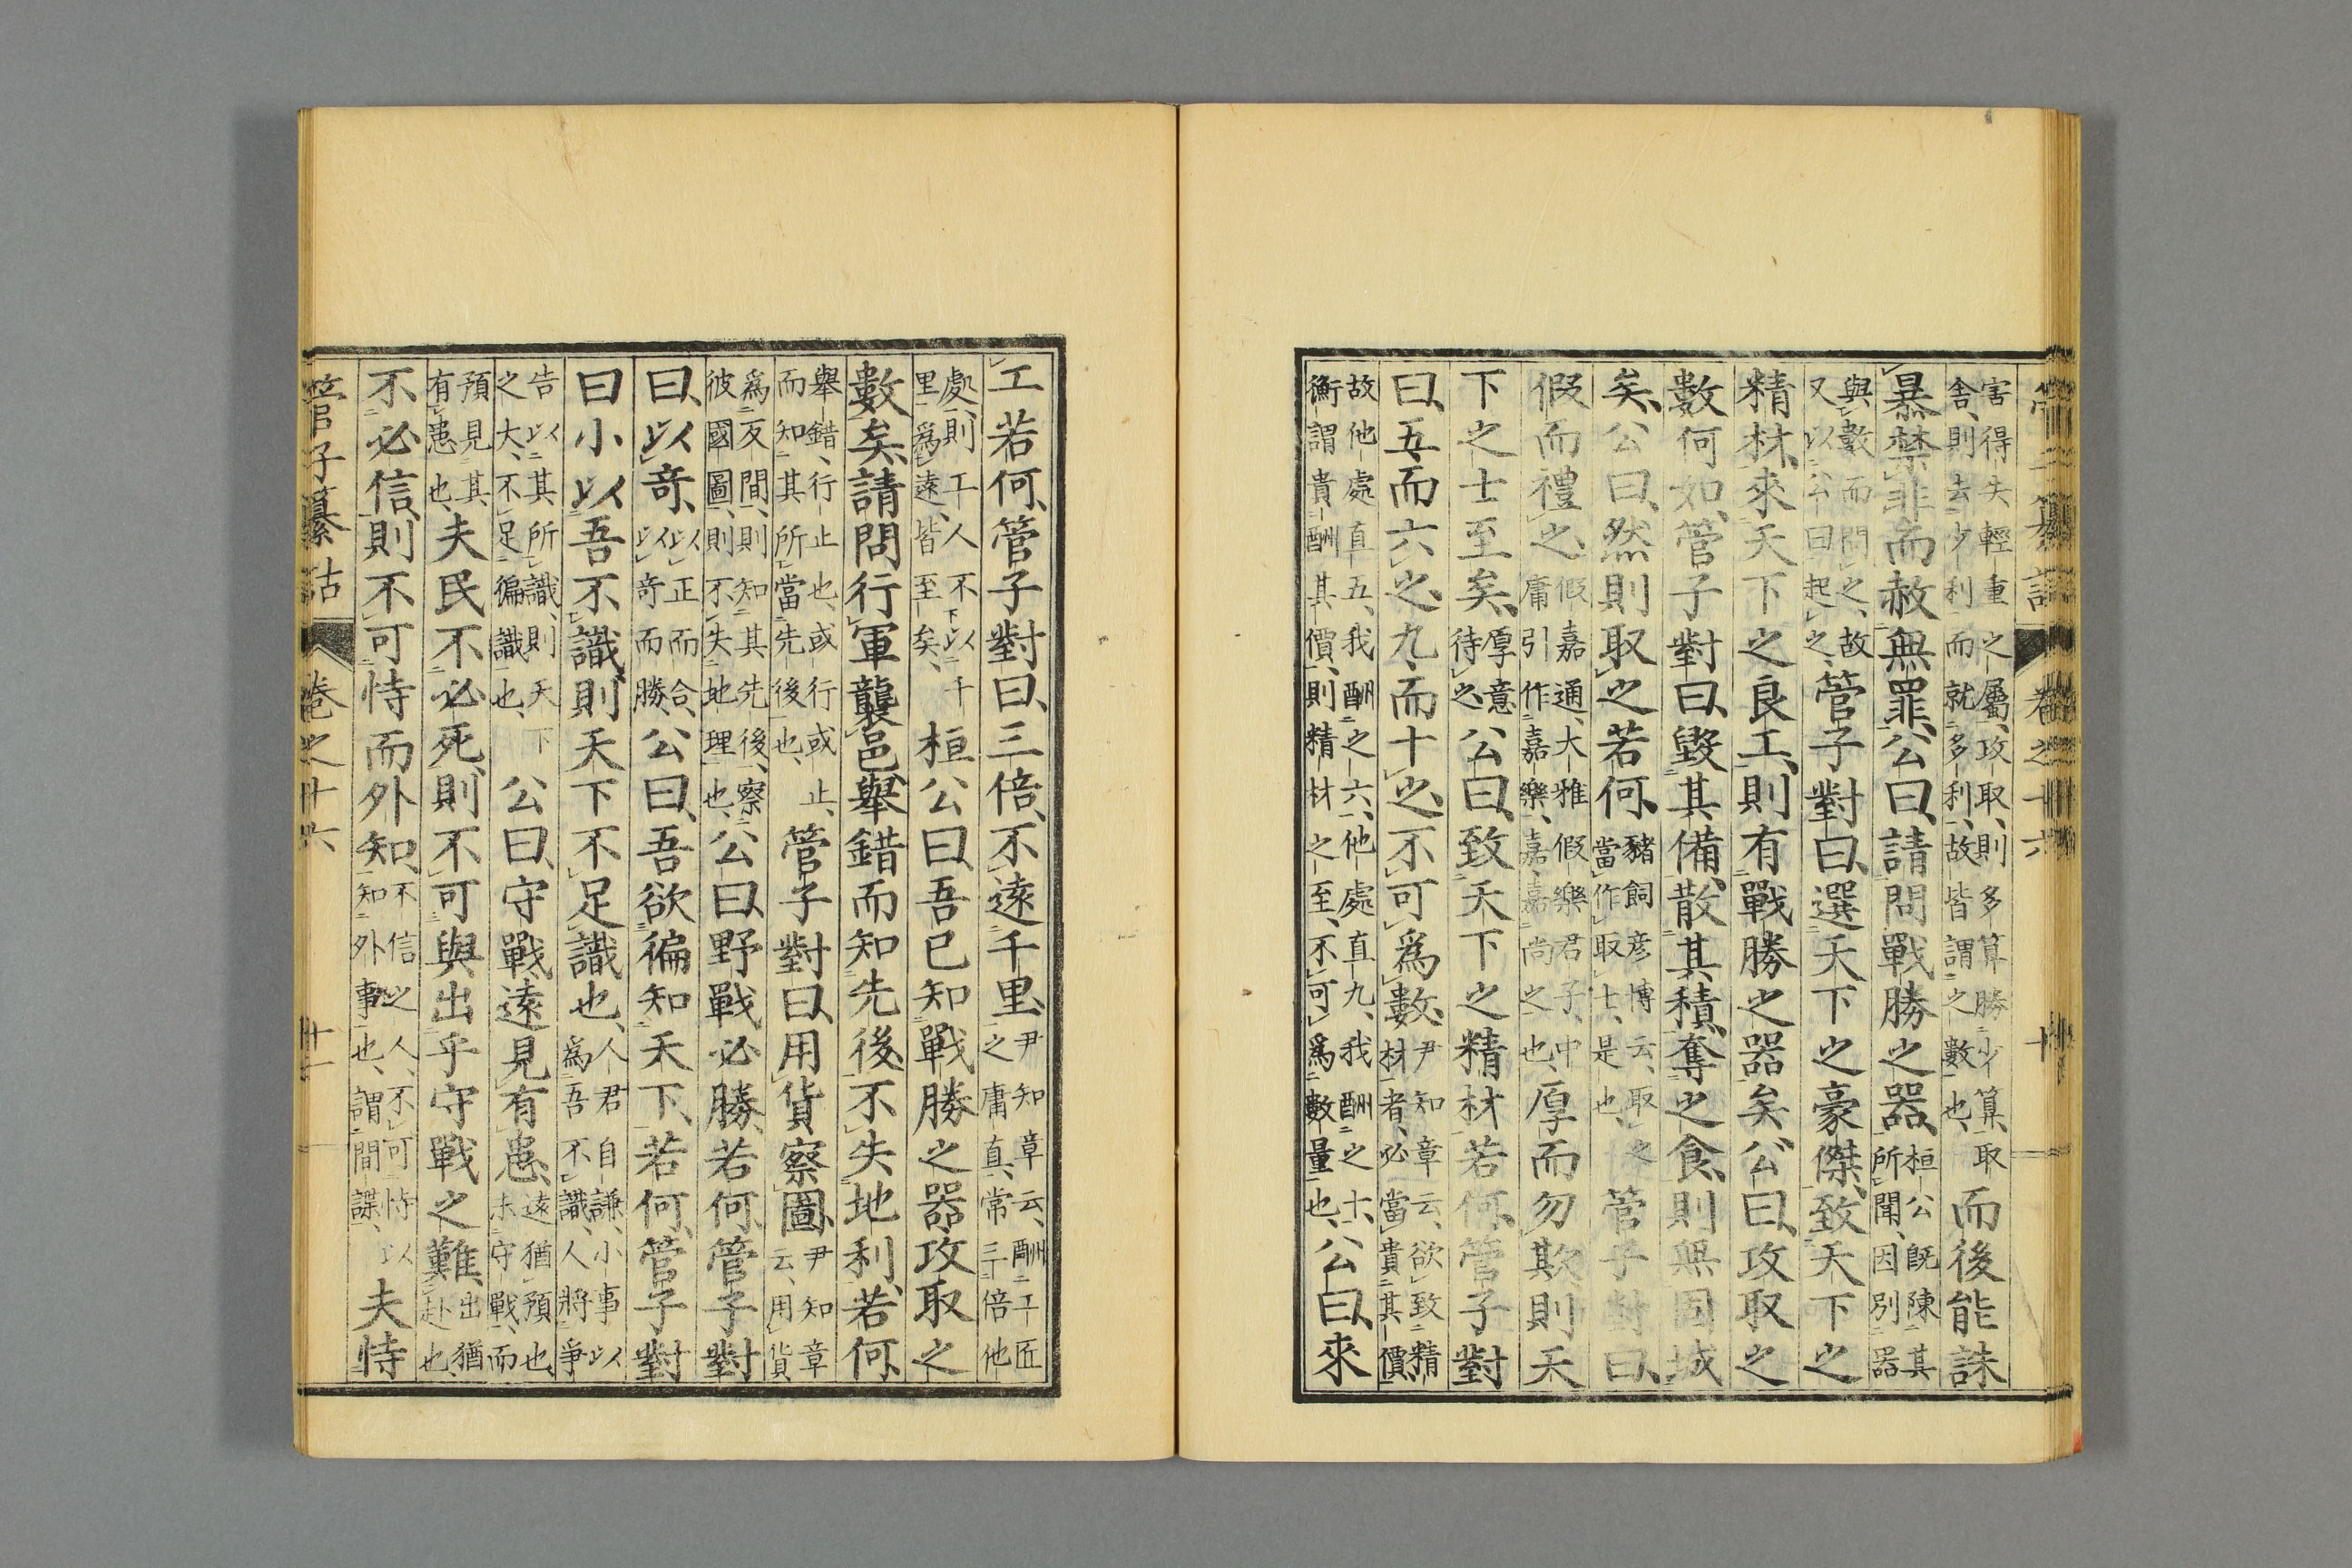 管子纂詁 卷之十六 十
害得失輕重之屬、攻取、則多算勝少算、取
舍、則去少利而就多利、故皆謂之數也、
而後能誅
暴禁非而赦無罪、公曰、請問戰勝之器、
桓公既陳其
所聞、因別器
與數而問之、故
又以公曰起之、
管子對曰、選天下之豪傑、致天下之
精材、來天下之良工、則有戰勝之器矣、公曰、攻取之
數何如、管子對曰、毀其備、散其積、奪之食、則無固城
矣、公曰、然則取之若何、
豬飼彥博云、取之
當作取士、是也、
管子對曰、
假而禮之、
假嘉通、大雅假樂君子、中
庸引作嘉樂、嘉、嘉尚之也、
厚而勿欺、則天
下之士至矣、
厚意
待之、
公曰、致天下之精材若何、管子對
曰、五而六之、九而十之、不可爲數、
尹知章云、欲致精
材者、必當貴其價
故他處直五、我酬之六、他處直九、我酬之十、
衡謂貴酬其價、則精材之至、不可爲數量也、
公曰、來
工若何、管子對曰、三倍、不遠千里、
尹知章云、酬工匠
之庸直、常三倍他
處、則工人不以千
里爲遠、皆至矣、
桓公曰、吾已知戰勝之器、攻取之
數矣、請問行軍襲邑、舉錯而知先後、不失地利、若何、
舉錯、行止也、或行或止、
而知其所當先後也、
管子對曰、用貨察圖、
尹知章
云、用貨
爲反間、則知其先後、察
彼國圖、則不失地理也、
公曰、野戰必勝、若何、管子對
曰、以奇、
以正而合、
以奇而勝、
公曰、吾欲徧知天下、若何、管子對
曰、小以吾不識、則天下不足識也、
人君自謙、小事以
爲吾不識、人將爭
告以其所識、則天下
之大、不足徧識也、
公曰、守戰、遠見、有患、
遠猶預也、
未守戰、而
預見其
有患也、
夫民不必死、則不可與出乎守戰之難、
出猶
赴也、
不必信、則不可恃而外知、
不信之人、不可恃以
知外事也、謂間諜、
夫恃
管子纂詁 卷之十六 十一